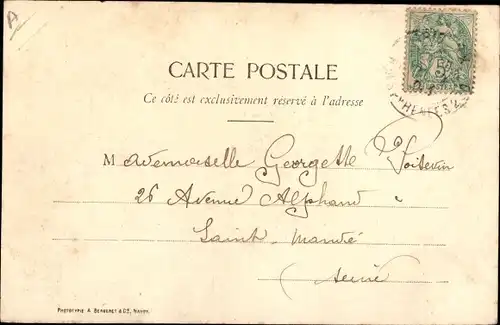 A
5c
POSTES
PYRENEES
CARTE POSTALE
Ce côté est exclusivement réservé à l'adresse
Mademoiselle Georgette Poitevin
26 Avenue Alphand
Saint-Mandé
(Seine
PHOTOTYPIE A. BERGERET & CIE, NANCY.